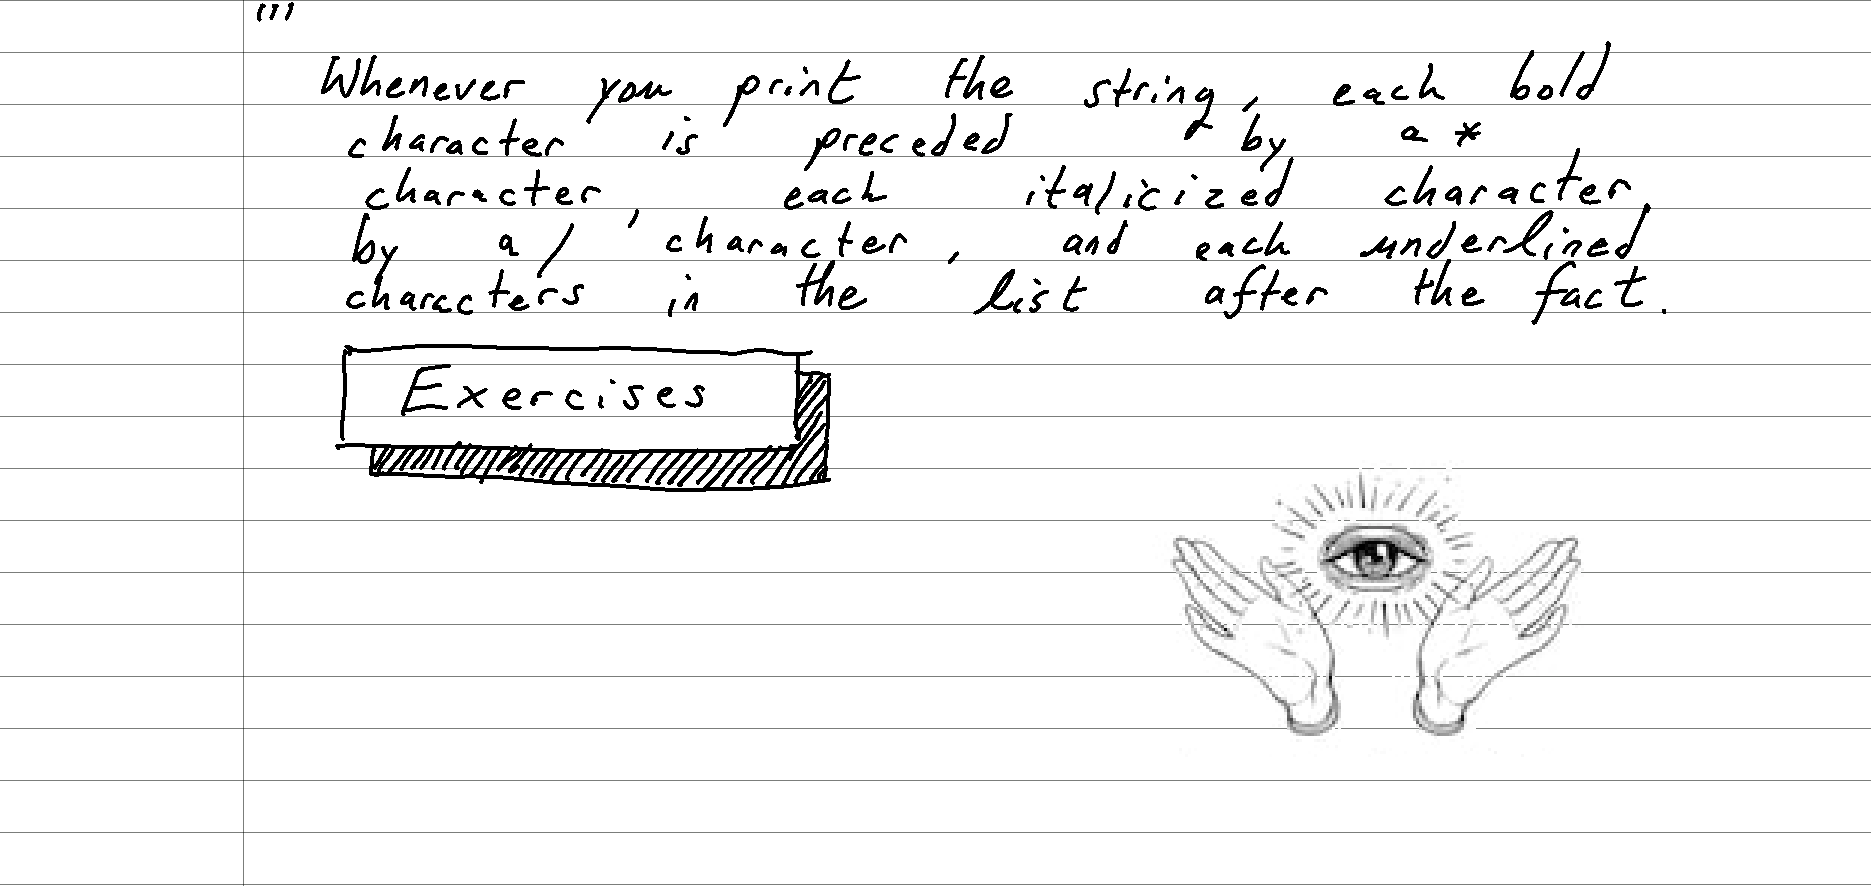 111
Whenever you print the string, each bold
character is preceded by a *
character, each italicized character
by a / character, and each underlined
characters in the list after the fact.
Exercises